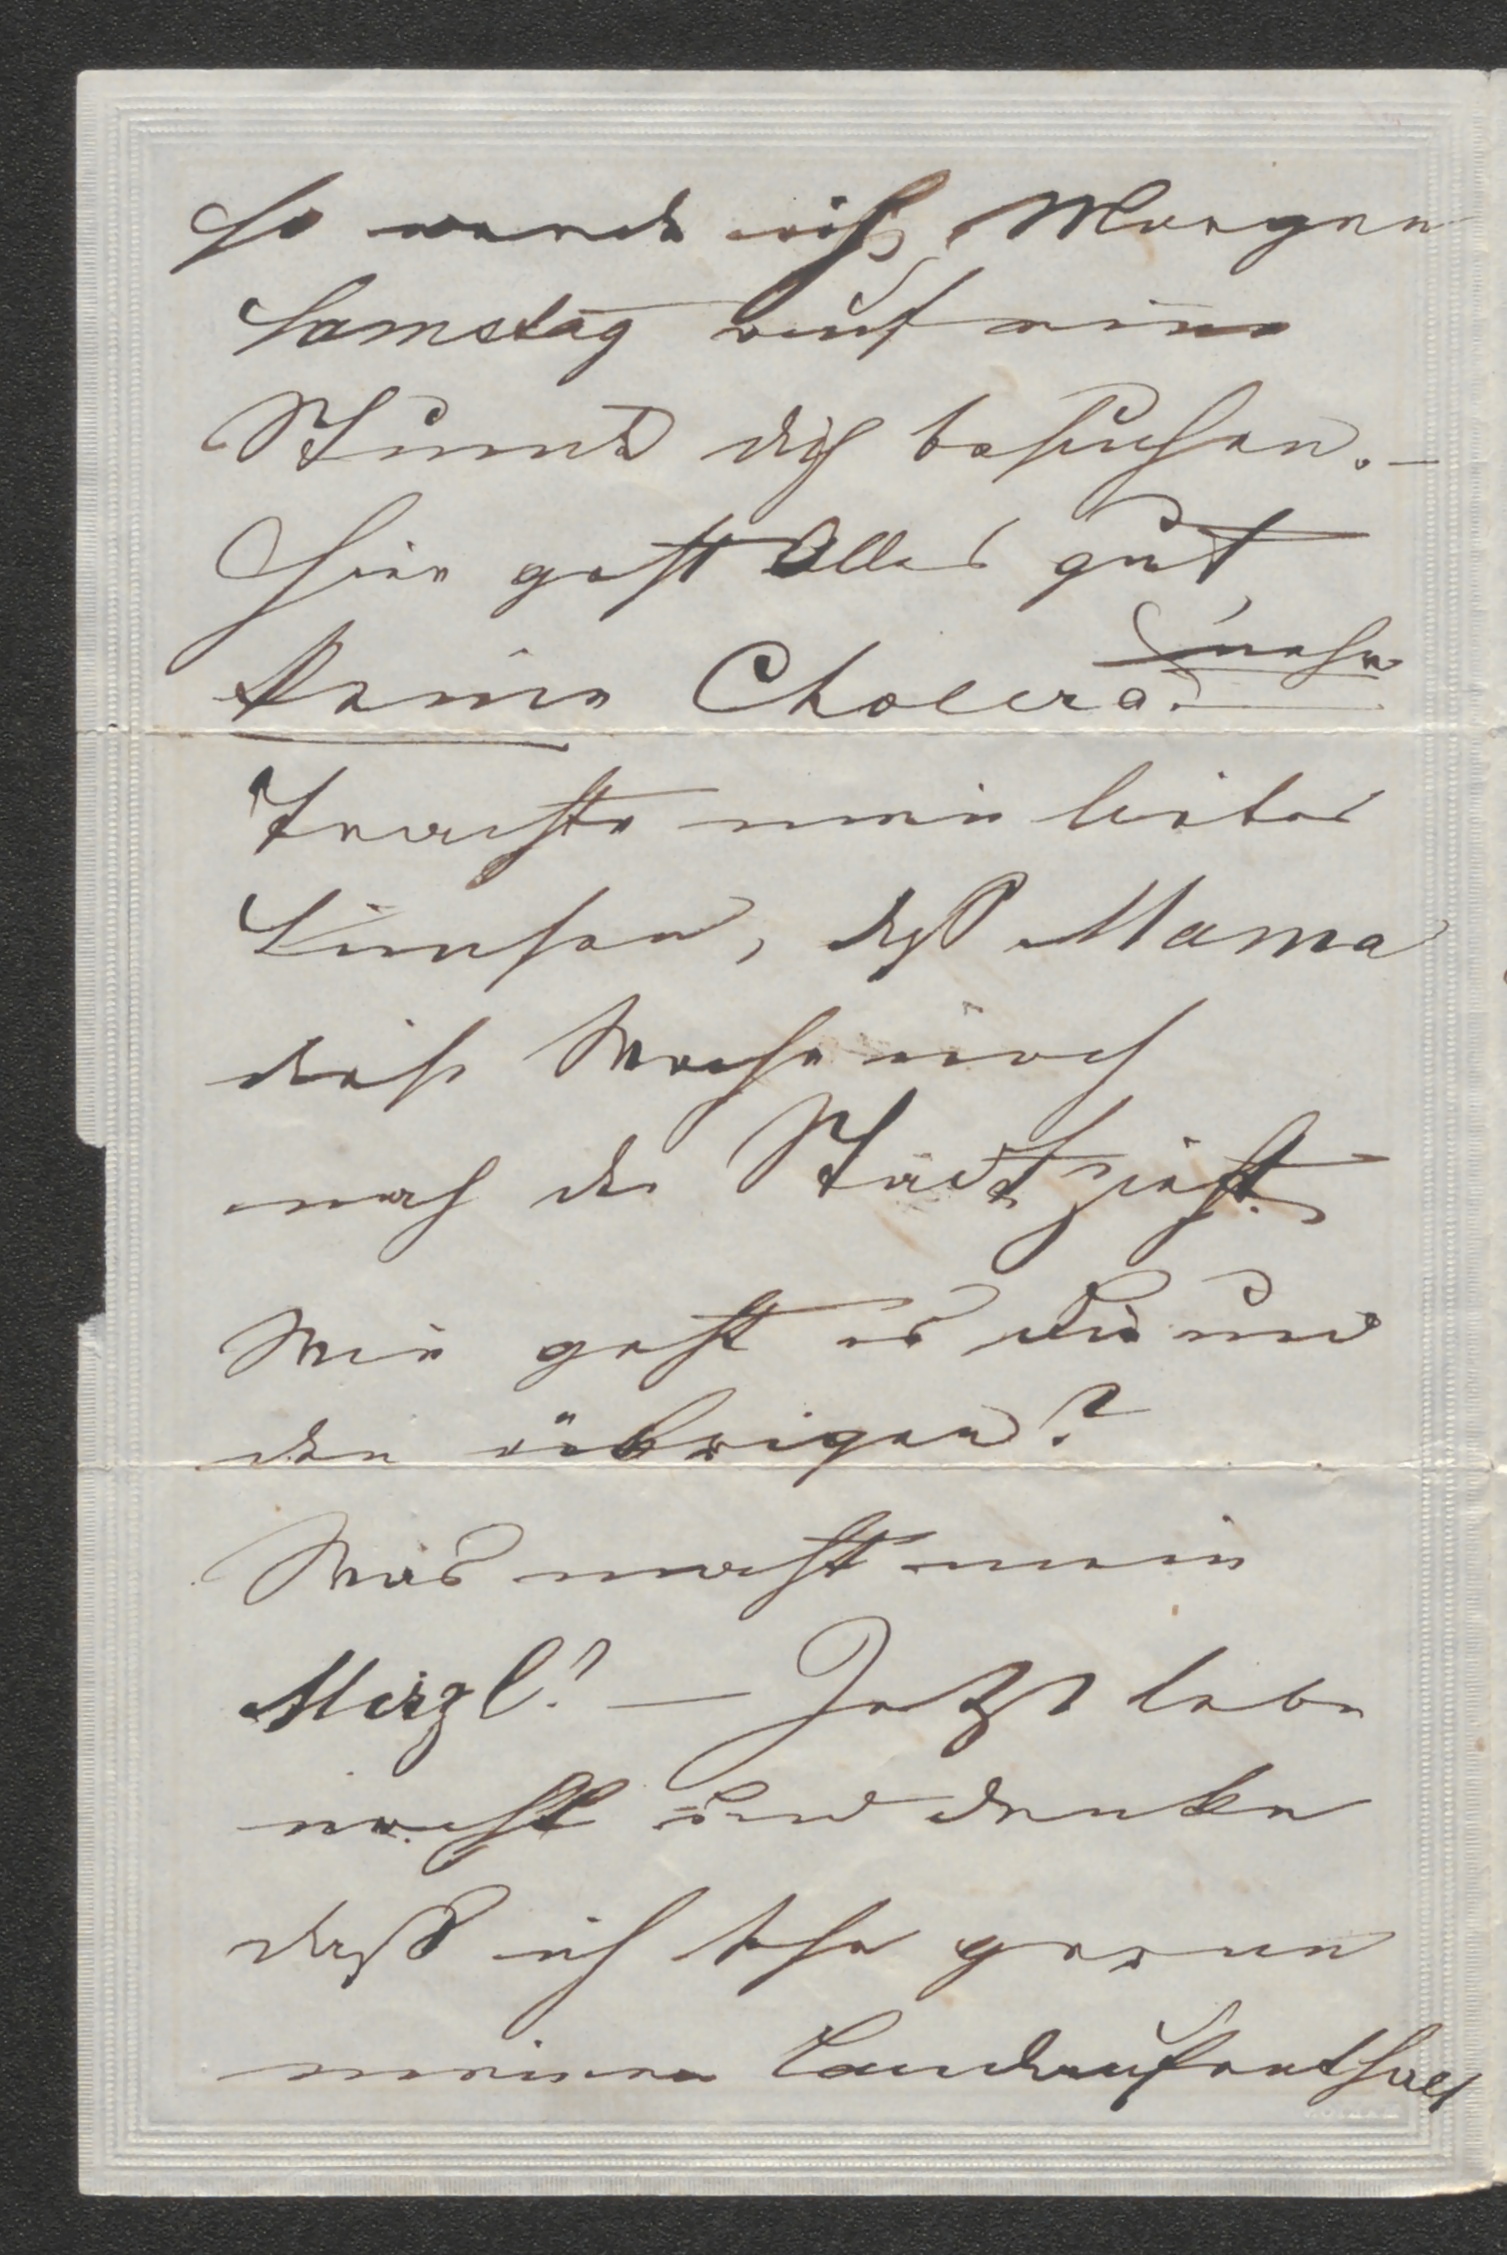 so werde ich Morgen
Samstag auf eine
Stunde dich besuchen. –
Hier geht Alles gut
keine Cholera mehr.
Trachte mein liebes
daß Mama
diese Woche noch
nach der Stadt zieht.
Wie geht es Dir und
den übrigen?
Was macht mein
Mirzl? – Jetzt lebe
recht und denke
daß ich sehr gerne
meinen Landaufenthalt